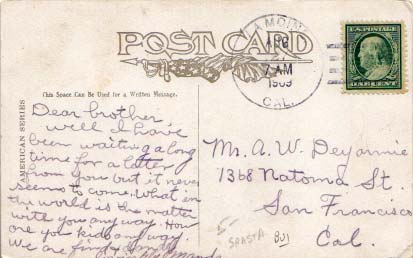 POST CARD
LAMOINE
APR
7 AM
1909
CAL.
U.S. POSTAGE
ONE CENT
This Space Can Be Used for a Written Message.
AMERICAN SERIES
Dear brother
well I have
been waiting a long
time for a letter
from you but it never
seems to come. What in
the world is the matter
with you any way. How
are you kids any way.
We are fine & dandy
Mr. A. W. Deyarmie
1368 Natoma St.
San Francisco
Cal.
SHASTA